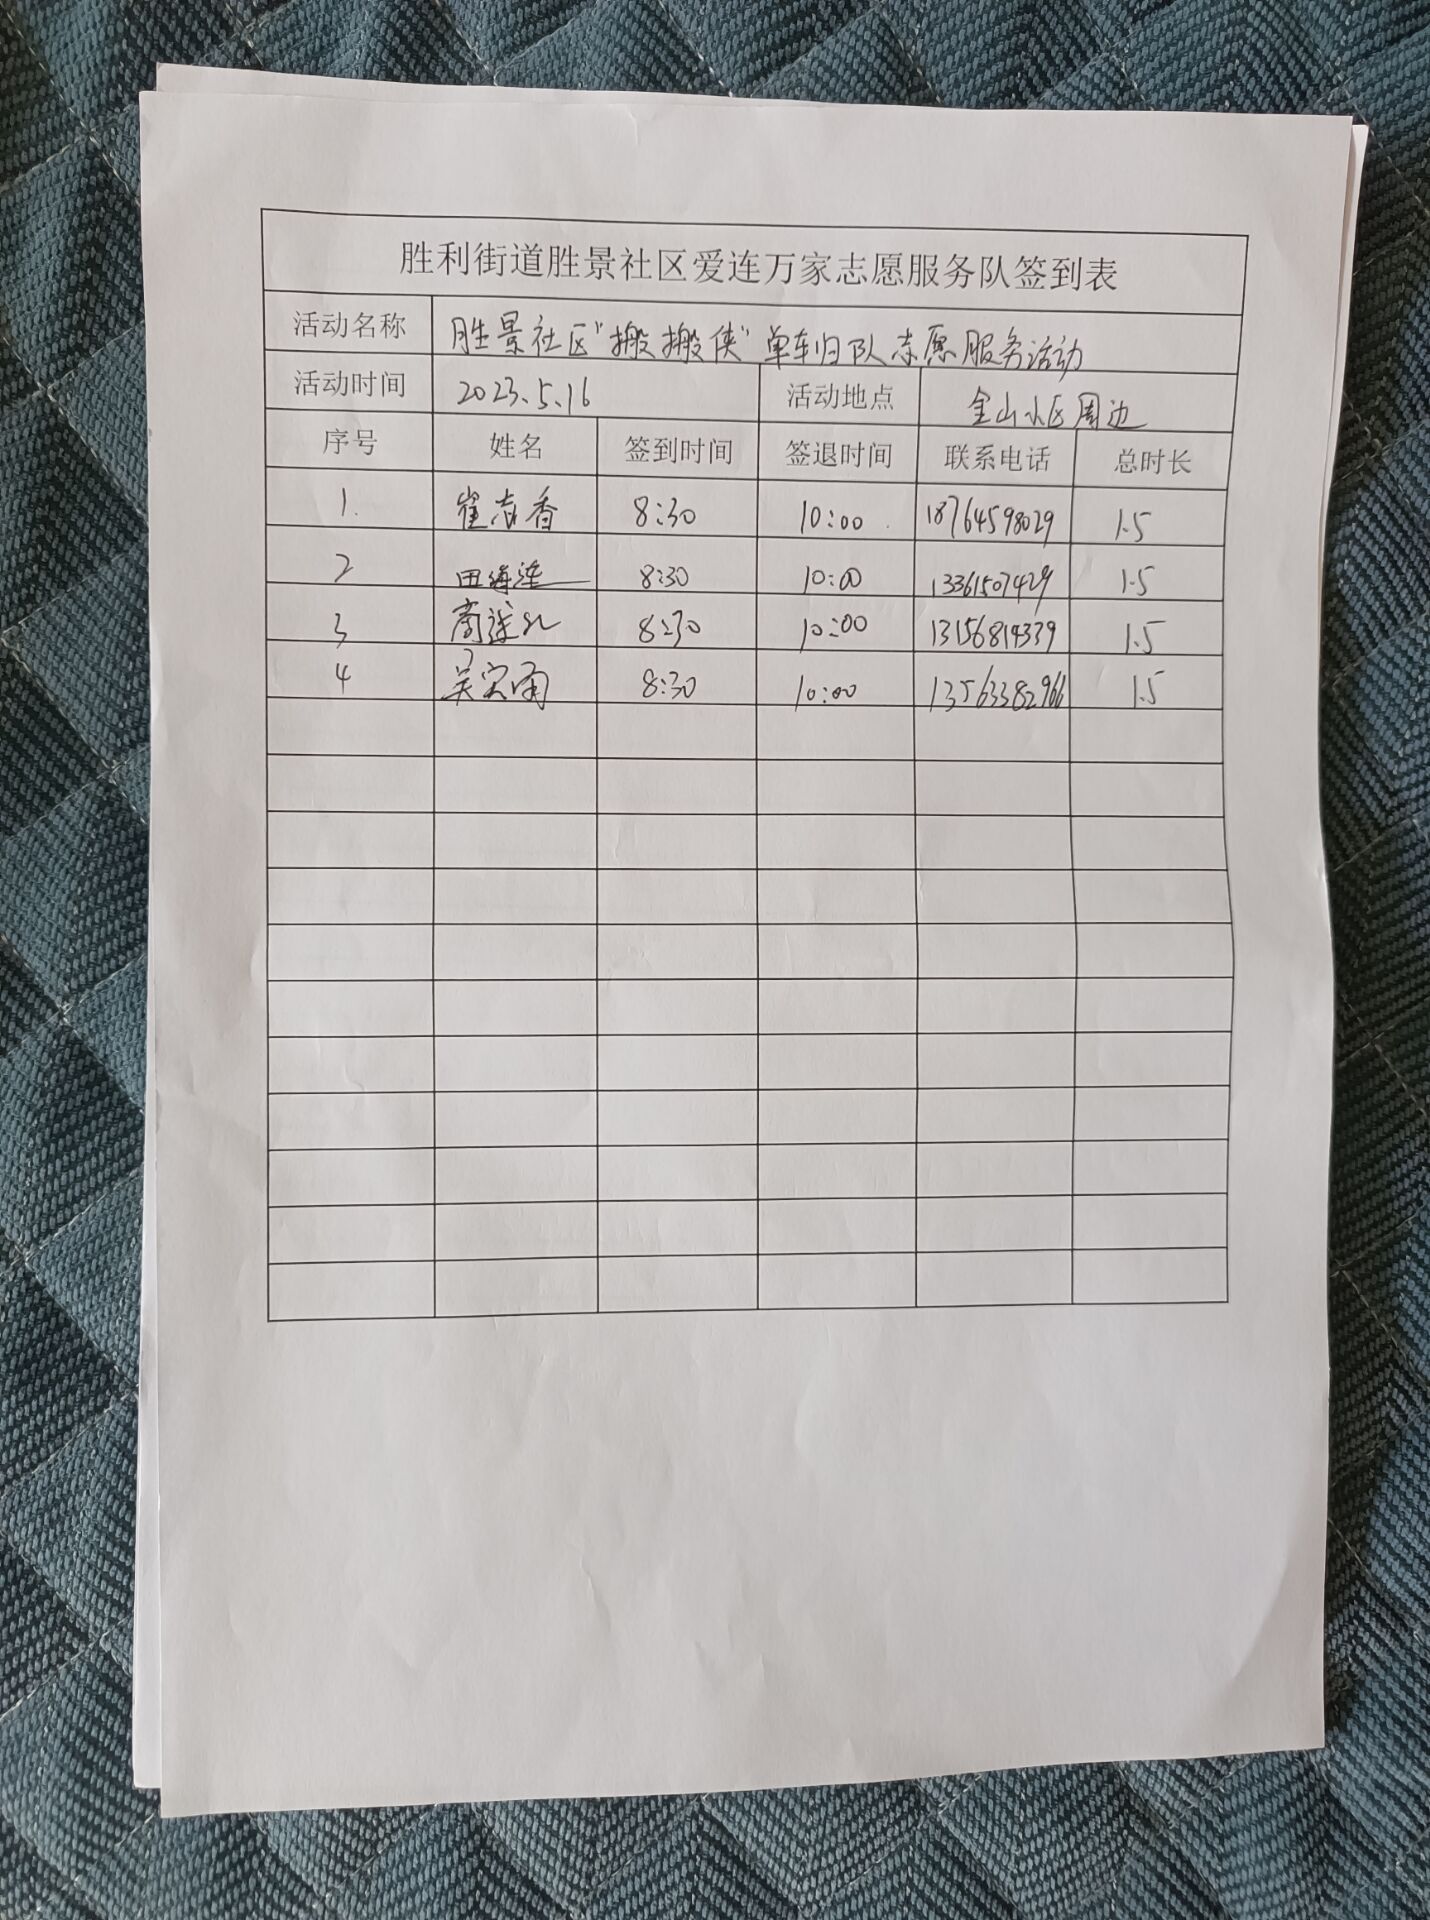 胜利街道胜景社区爱连万家志愿服务队签到表
活动名称 胜景社区"搬搬侠"单车归队志愿服务活动
活动时间 2023.5.16 活动地点 金山小区周边
序号 姓名 签到时间 签退时间 联系电话 总时长
1. 崔志香 8:30 10:00 18764598029 1.5
2 田 8:30 10:00 13361507429 1.5
3 商 8:30 10:00 13156814339 1.5
4 吴 雨 8:30 10:00 13563382966 1.5